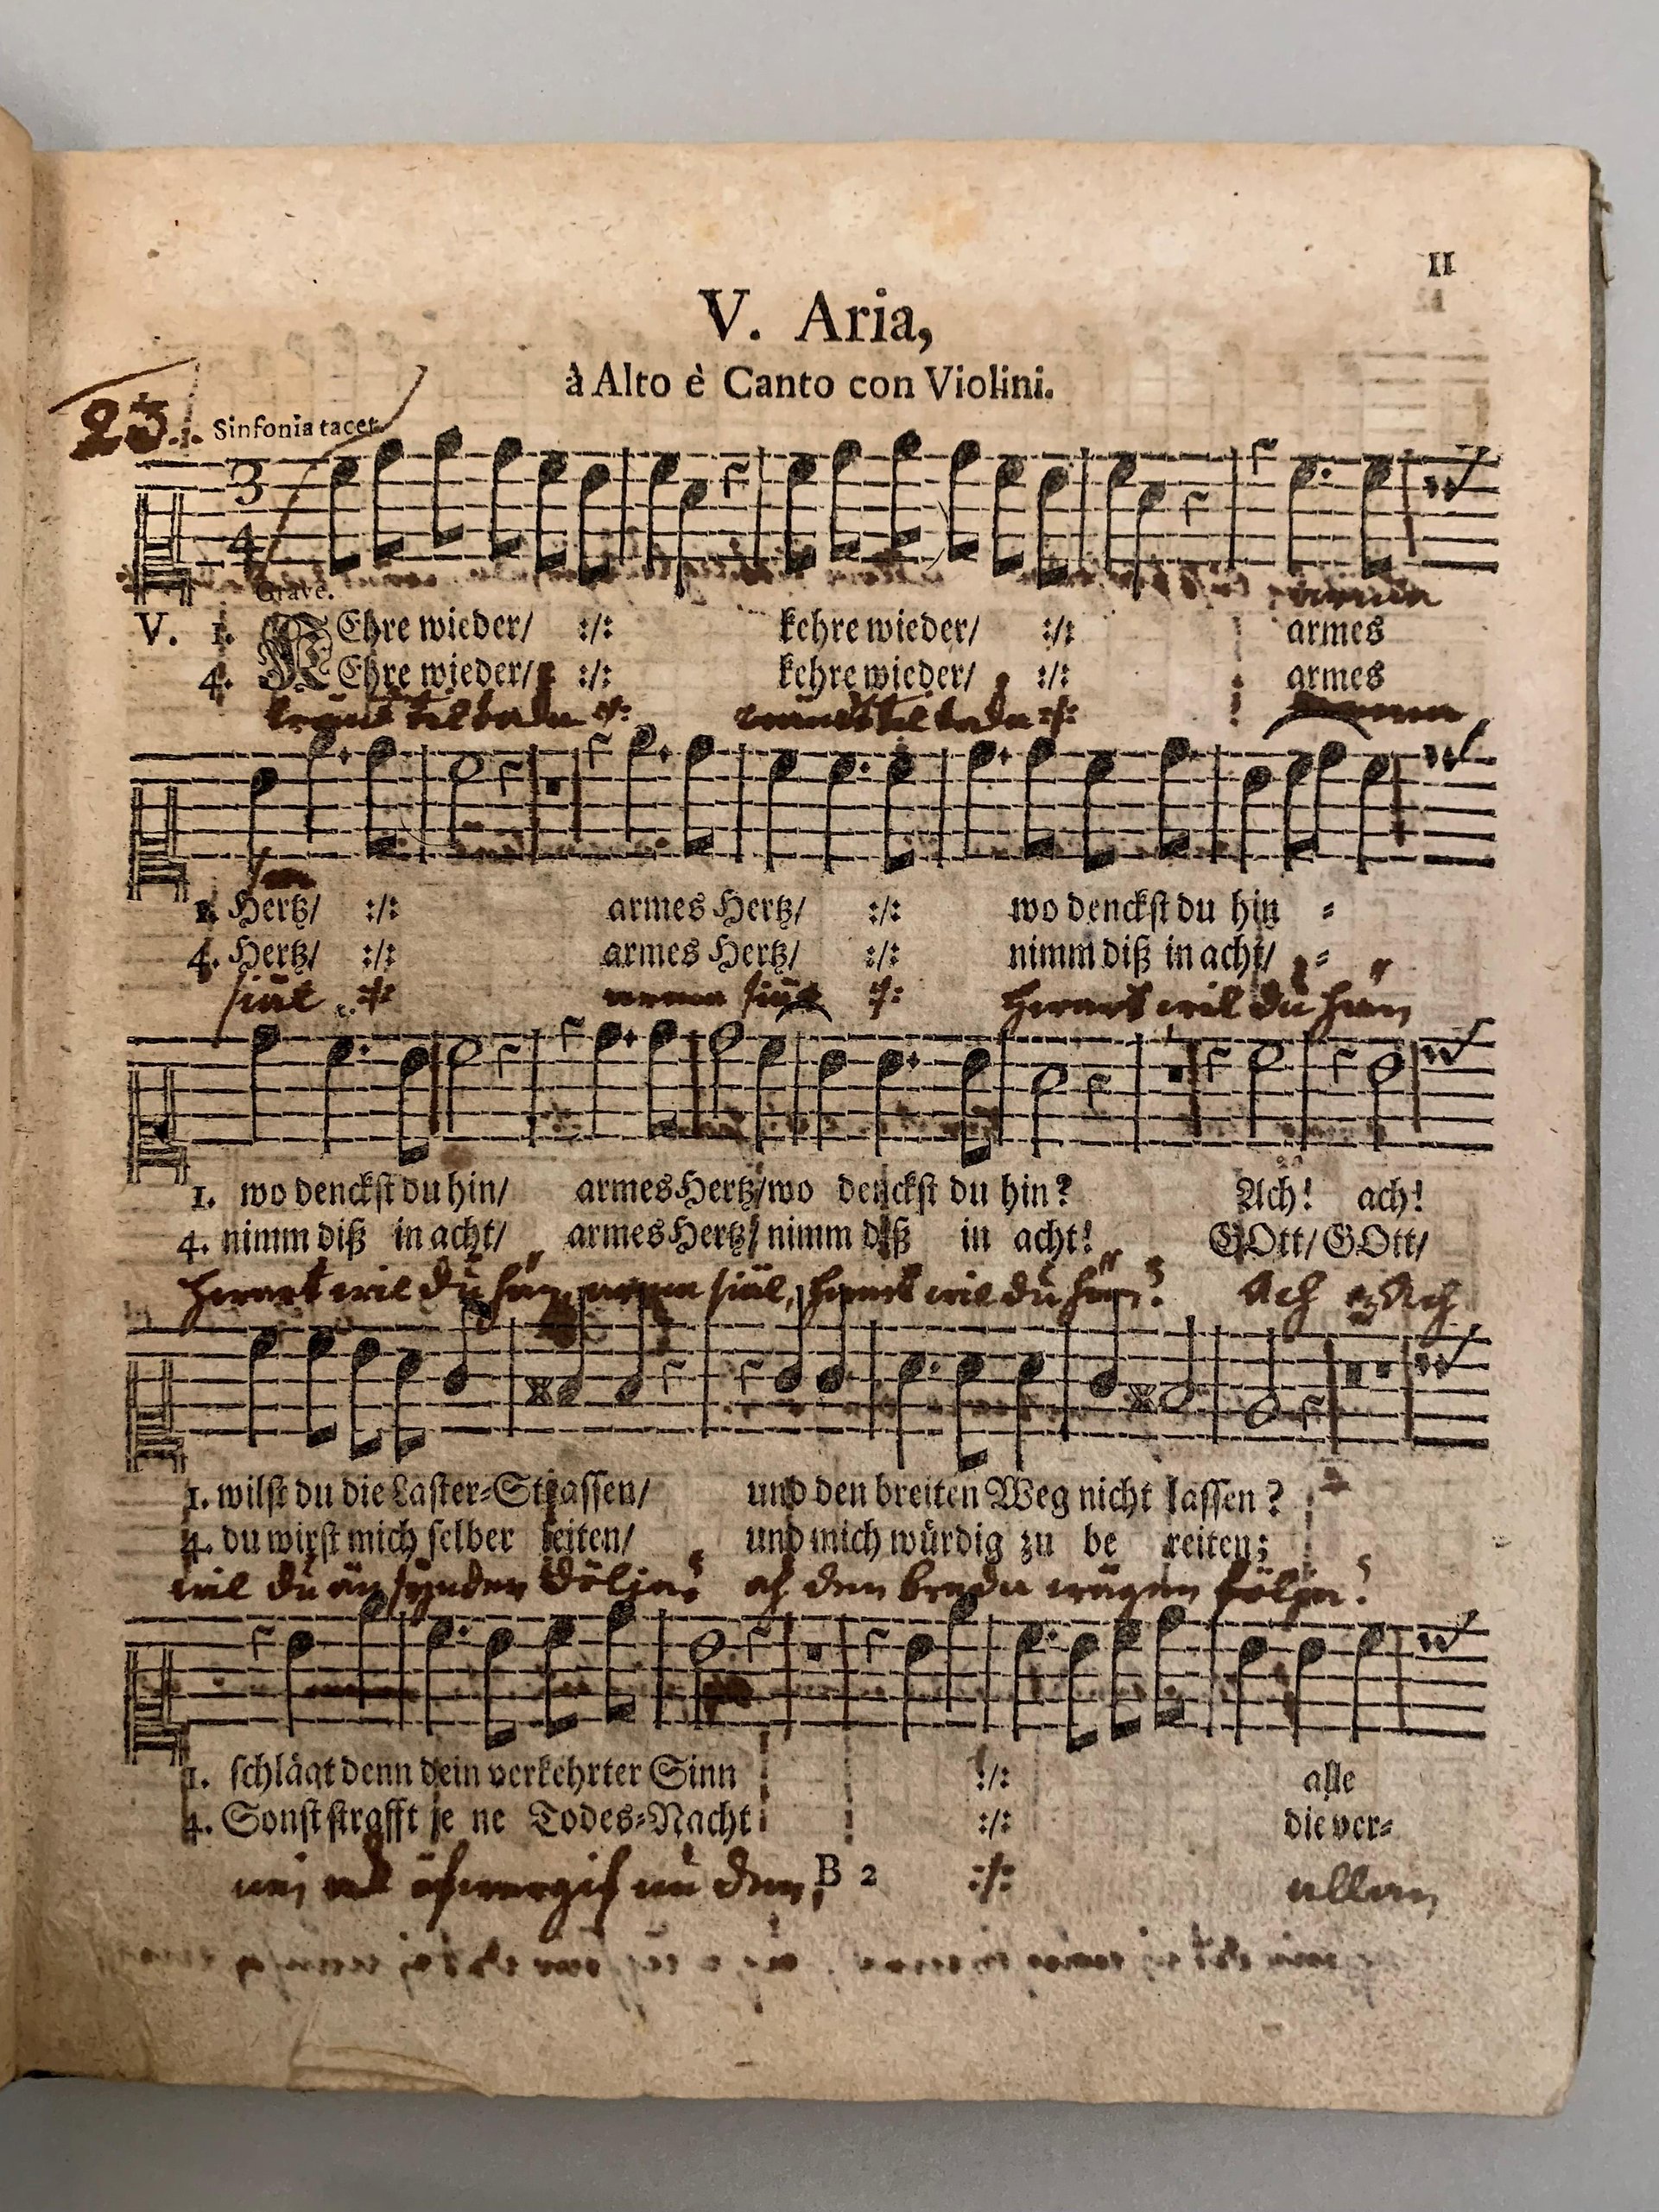 II
V. Aria,
à Alto è Canto con Violini.
23.
Sinfonia tacet.
3
4
Grave.
V. 1. KEhre wieder/ :/: kehre wieder/ :/: armes
4. KEhre wieder/ :/: kehre wieder/ :/: armes
1. Hertz/ :/: armes Hertz/ :/: wo denckst du hin =
4. Hertz/ :/: armes Hertz/ :/: nimm diß in acht/ =
siäl :/: siäl :/: wil du hän
1. wo denckst du hin/ armes Hertz/ wo denckst du hin? Ach! ach!
4. nimm diß in acht/ armes Hertz/ nimm diß in acht! GOtt/ GOtt/
wil du hän, siäl, wil du hän? Ach Ach
1. wilst du die Laster-Strassen/ und den breiten Weg nicht lassen?
4. du wirst mich selber leiten/ und mich würdig zu be reiten;
wil du än synden dölja? den breda wägen följa?
1. schlägt denn dein verkehrter Sinn :/: alle
4. Sonst strafft je ne Todes-Nacht :/: die ver-
B 2
nu :/: allan